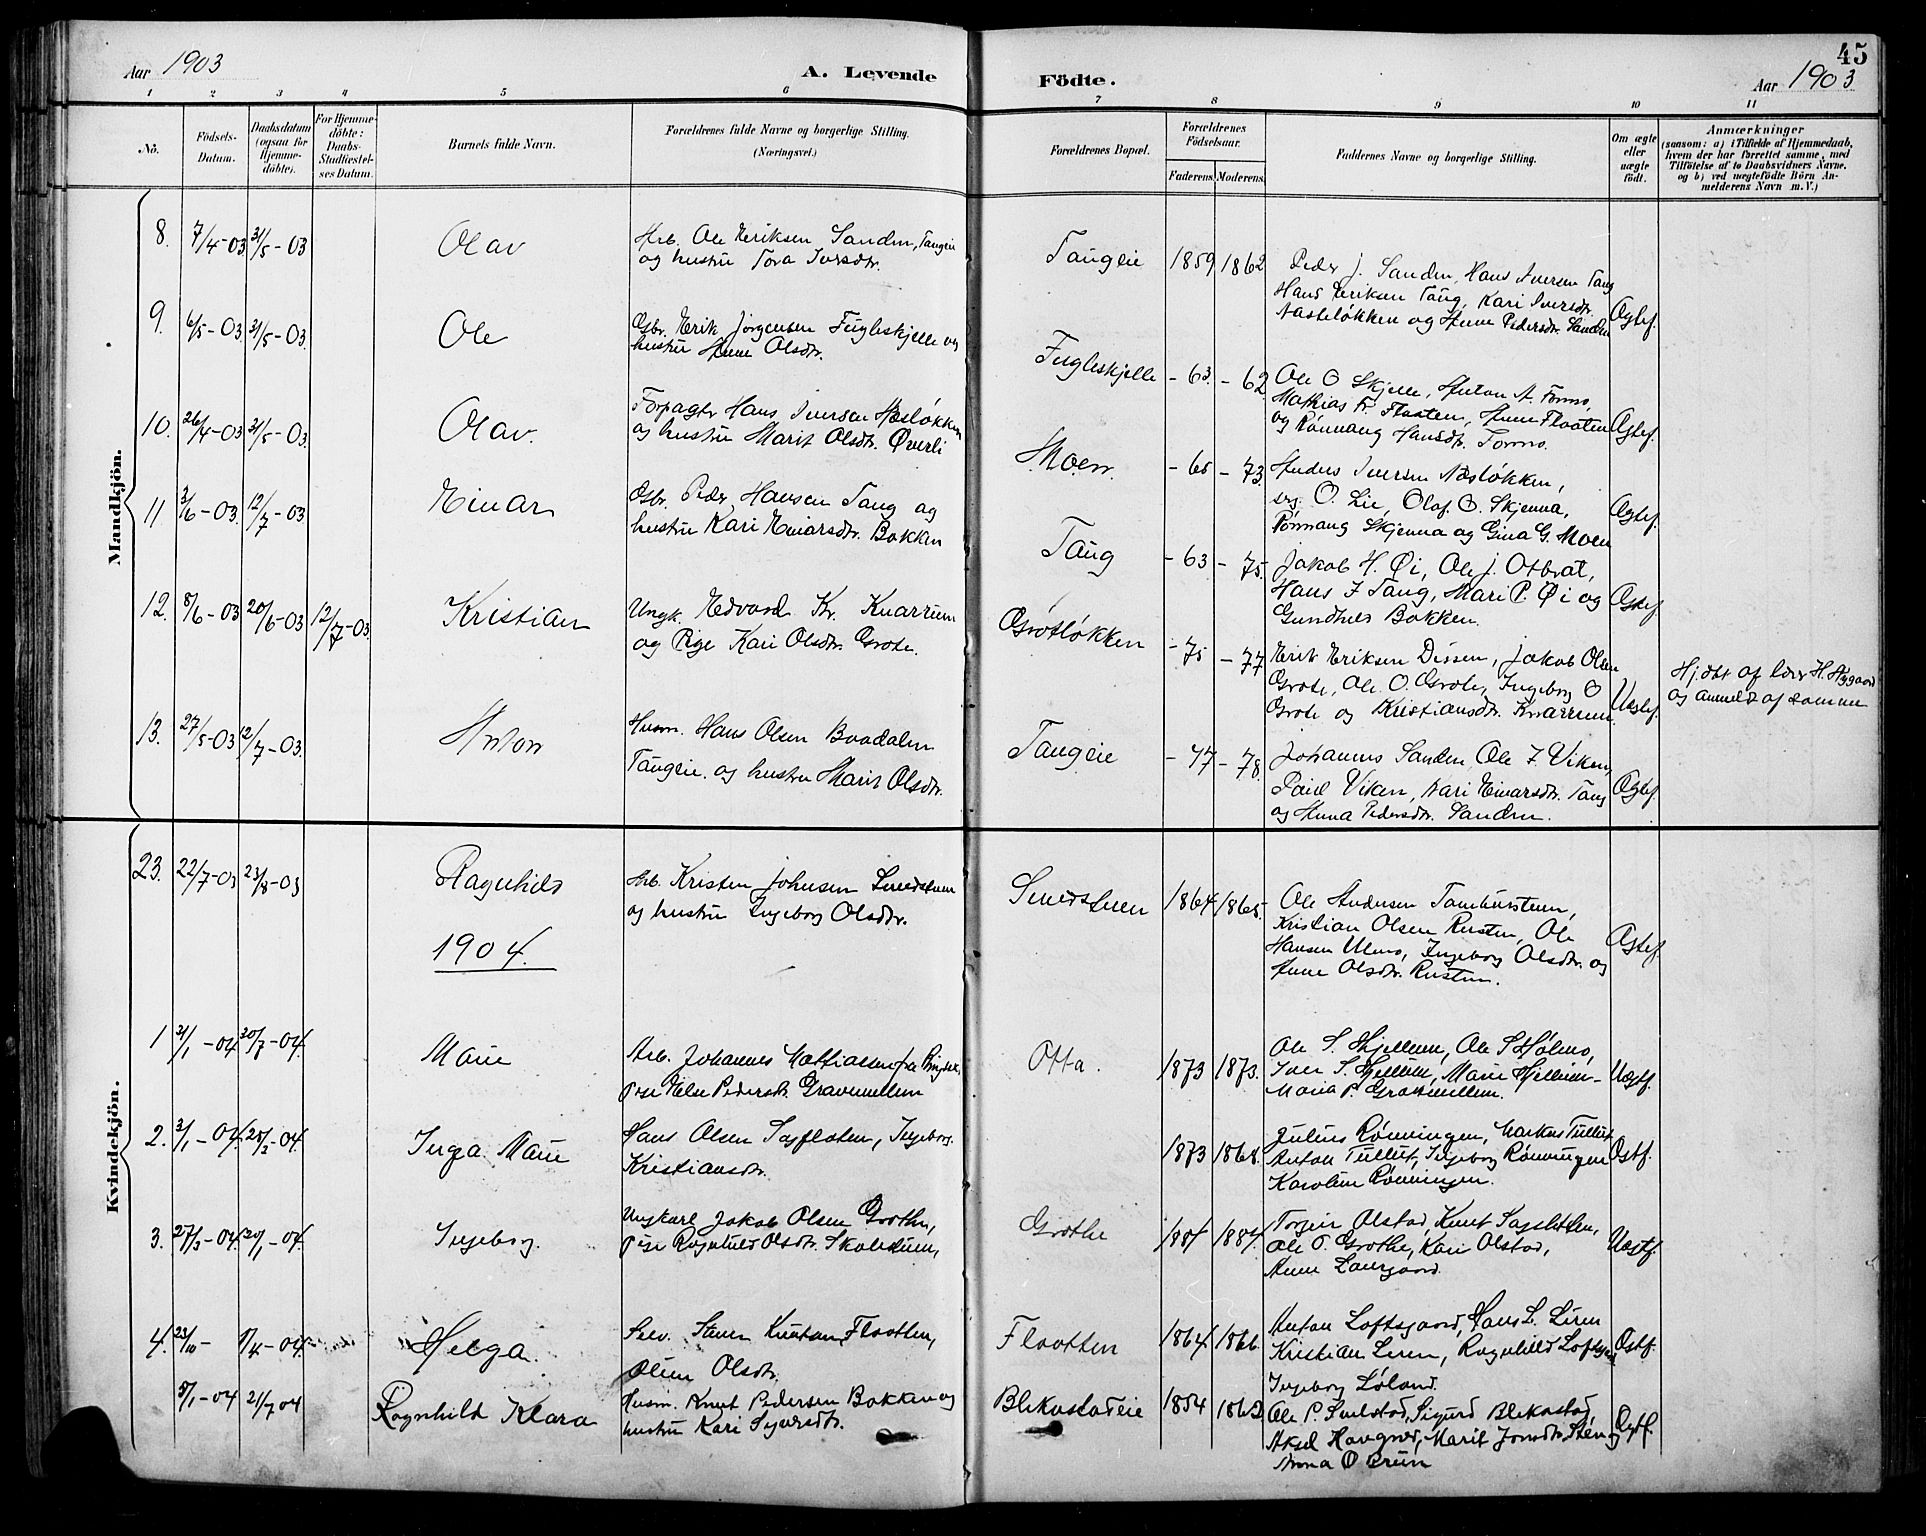 45
Aar 1903
A. Levende
Födte.
Aar 1903
1 2 3 4 5 6 7 8 9 10 11
Nö.
Födsels-
Datum.
Daabsdatum
(ogsaa for
Hjemme-
döbte).
For Hjemme-
döbte:
Daabs-
Stadfæstel-
ses Datum.
Barnets fulde Navn.
Forældrenes fulde Navne og borgerlige Stilling.
(Næringsvei.)
Forældrenes Bopæl.
Forældrenes
Födselsaar.
Faderens. Moderens.
Faddernes Navne og borgerlige Stilling.
Om ægte
eller
uægte
födt.
Anmærkninger
(saasom: a) i Tilfælde af Hjemmedaab,
hvem der har forrettet samme, med
Tilföielse af to Daabsvidners Navne.
og b) ved uægtefödte Börn An-
melderens Navn m. V.)
Mandkjön.
8. 7/4-03 31/5-03
Olav
Arb. Ole Eriksen Sanden, Taugeie
og hustru Tora Iversdtr.
Taugeie 1859 1862
Peder J. Sanden, Hans Iversen Taug
Hans Eriksen Taug, Kari Iversdtr.
og Anne Pedersdtr. Sanden
Ægtef.
9. 6/5-03 31/5-03.
Ole
Gbr. Erik Jörgensen Fugleskjelle og
hustru Anne Olsdtr.
Fugleskjelle -63. -62
Ole O Skjelle, Anton A. Formo,
Mathias Fr. Flaaten, Anne Flaaten
og Rönnaug Hansdtr. Formo.
Ægtef.
10. 26/4-03 31/5-03.
Olav.
Forpagtr Hans Iversen Næsløkken
og hustru Marit Olsdtr. Øverli
Moen. -65 -73.
Anders Iversen Næsløkken,
O. Lie, Olaf O. Skjenna,
Rönnaug Skjenna og Gina G. Moen
Ægtef.
11 3/6-03. 12/7-03
Einar
Gbr. Peder Hansen Taug og
hustru Kari Einarsdtr. Bakken
Taug -63 -75.
Jakob H. Øi, Ole J.
Hans J Taug, Mari P. Øi og
Bakken.
Ægtef.
12. 8/6-03 20/6-03 12/7-03.
Kristian
Ungk. Edvard Kr. Knarrum
og Pige Kari Olsdtr. Grote.
Groteløkken -75 -77
Erik Eriksen Dissen, Jakob Olsen
Grote, Ole O. Grote, Ingeborg O
Grote og Kristiansdtr. Knarrum.
Uægtef.
Hj.dbt af lær H.
og anmeldt af samme
13. 27/5-03 12/7-03.
Anton
Husm. Hans Olsen Baadalen
Taugeie. og hustru Marit Olsdtr.
Taugeie -47 -78.
Johannes Sanden, Ole J. Viken,
Paul Viken, Kari Einarsdtr. Taug
og Anna Pedersdtr. Sanden.
Ægtef.
Kvindekjön.
23. 22/7-03 23/8-03
Ragnhild
Arb. Kristen Johnsen Smedstuen
og hustru Ingeborg Olsdtr.
Smedstuen 1864 1865.
Ole Andersen
Kristian Olsen Rusten, Ole
Hansen Ulmo, Ingeborg Olsdtr. og
Anne Olsdtr. Rusten.
Ægtef.
1904.
1 31/1-04 30/7-04.
Marie
Arb. Johannes Mattiassen fra
pige Else Pedersdtr.
Otta. 1873 1873.
Ole S. Hjellum, Ole S Hölmo,
Iver S. Hjellum, Marie Hjellum
Maria P.
Uægtf.
2. 3/1-04. 28/2-04.
Inga Marie
Hans Olsen Sagfloten, Ingeborg
Kristiansdtr.
1873 1868.
Julius Rönningen, Markus Tullut
Anton Tullut, Ingeborg Rönningen
Karoline Rönningen.
Ægtf.
3. 27/3-04 20/1-04.
Ingeborg.
Ungkarl Jakob Olsen Grothe,
pige Ragnhild Olsdtr.
Grothe 1884 1884.
Torgeir Olstad, Knut
Ole O. Grothe, Kari Olstad,
Anne
Uægtf.
4. 23/10- 17/4-04.
Helga.
Selv. Steen Flaatten,
Oline Olsdtr.
Flaatten 1864 1866.
Anton Loftsgaard, Hans L. Liren
Kristian Leren, Ragnhild
Ingeborg Löland.
Ægtf.
5/1-04 21/7 04
Ragnhild Klara
Husm. Knut Pedersen Bakken og
hustru Kari Syversdtr.
Blekastadeie 1854 1862
Ole P. Smedstad, Sigurd Blekastad,
Aksel Haugard, Marit Jonsdtr. og
Anna O Bruun
Ægtf.